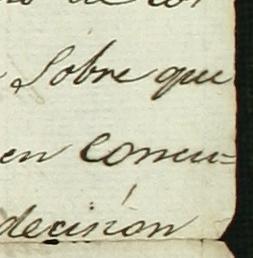 Sobre que
en concu=
decision